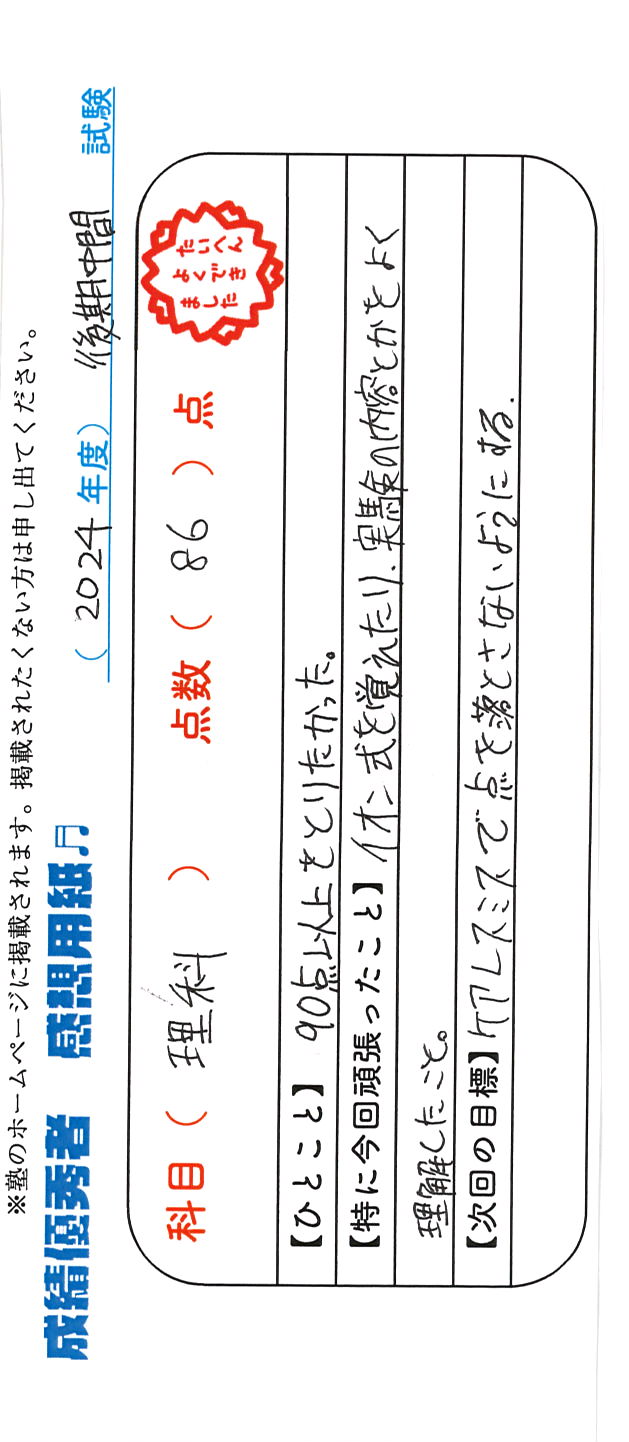 ※塾のホームページに掲載されます。掲載されたくない方は申し出てください。
成績優秀者 感想用紙♬ (2024年度) 後期中間 試験
科目(理科) 点数(86)点
たいへん
よくでき
ました
【ひとこと】90点以上をとりたかった。
【特に今回頑張ったこと】イオン式を覚えたり、実験の内容とかをよく
理解したこと。
【次回の目標】ケアレスミスで点を落とさないようにする.